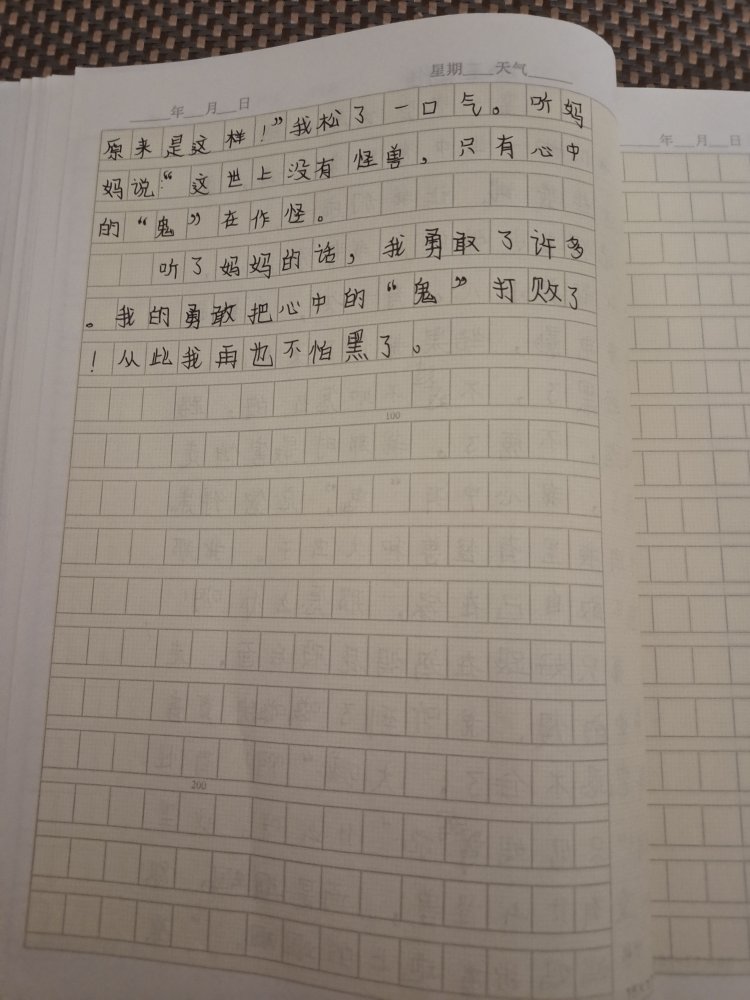 星期____天气____
____年__月__日
原来是这样！”我松了一口气。听妈
妈说：“这世上没有怪兽，只有心中
的“鬼”在作怪。
听了妈妈的话，我勇敢了许多
。我的勇敢把心中的“鬼”打败了
！从此我再也不怕黑了。
100
200
__年__月__日